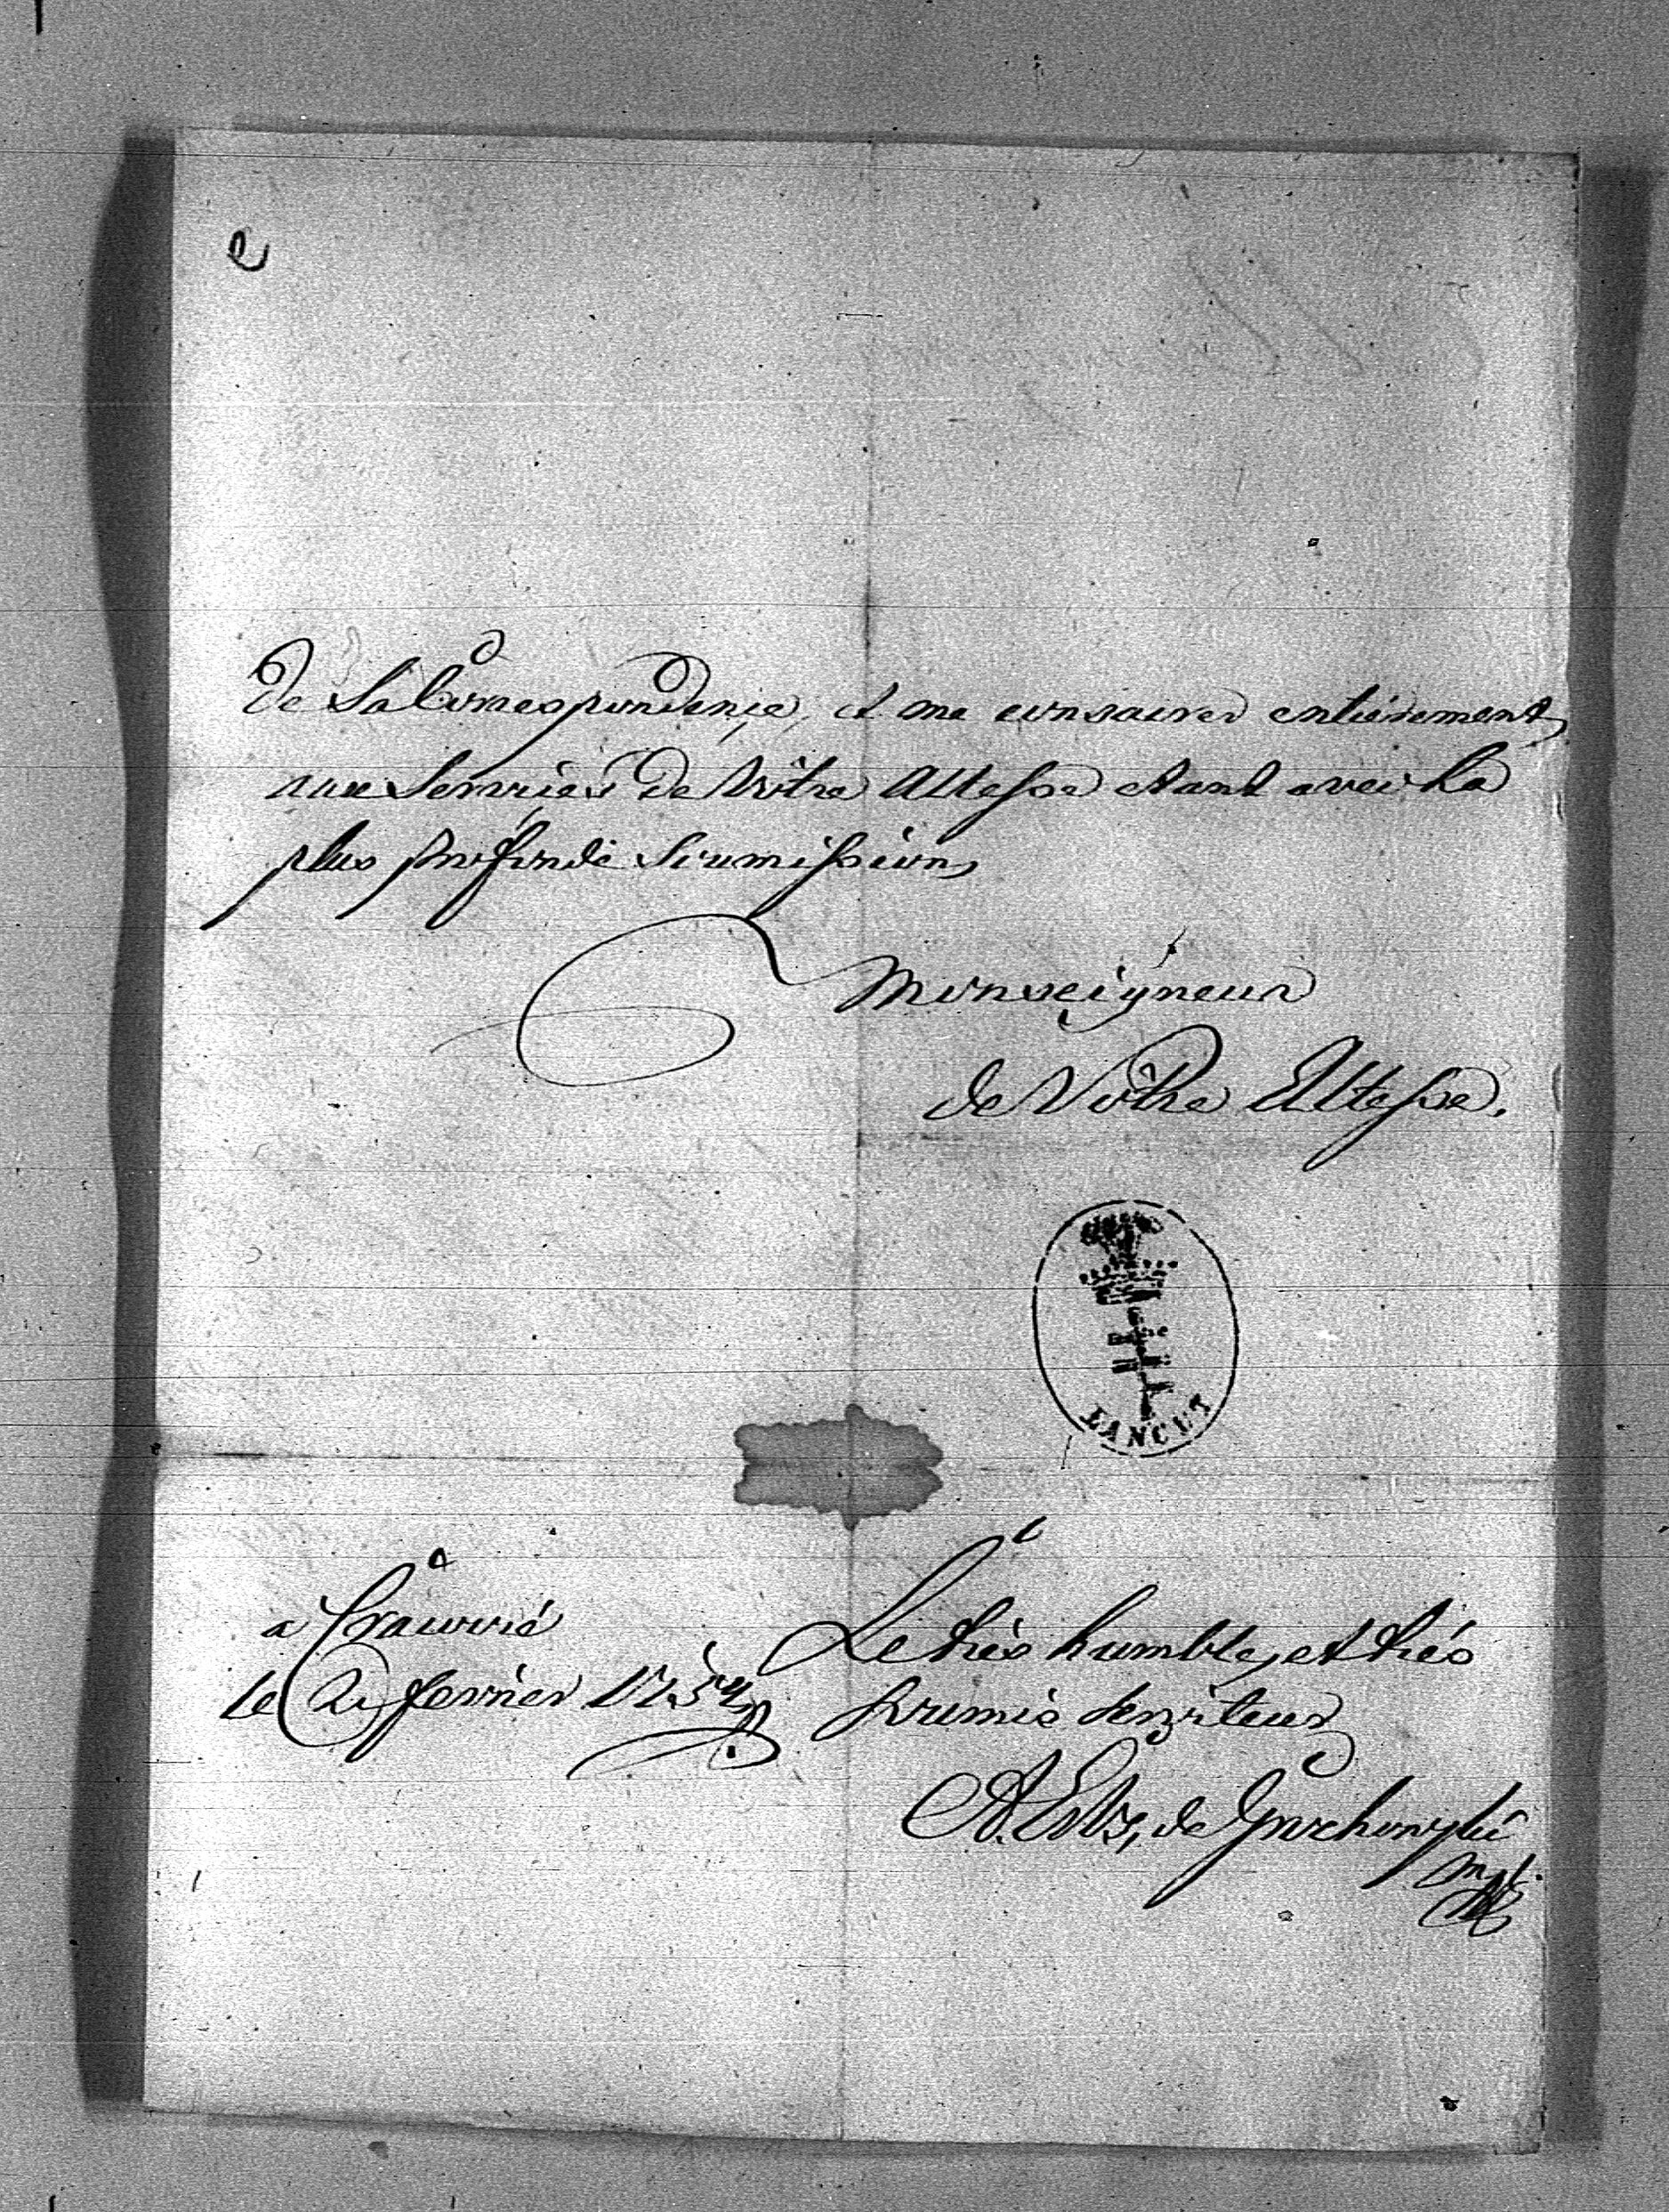 de Sa Correspondençe, et me consacrer entiérement
aux Services de Vôtre Altesse etant avec La
plus profonde Soumission
Monseigneur
de Vôtre Altesse.
LANCUT
a Cracovie
le 27 fevrier 1754
Le trés humble, et trés
soumis serviteur
de